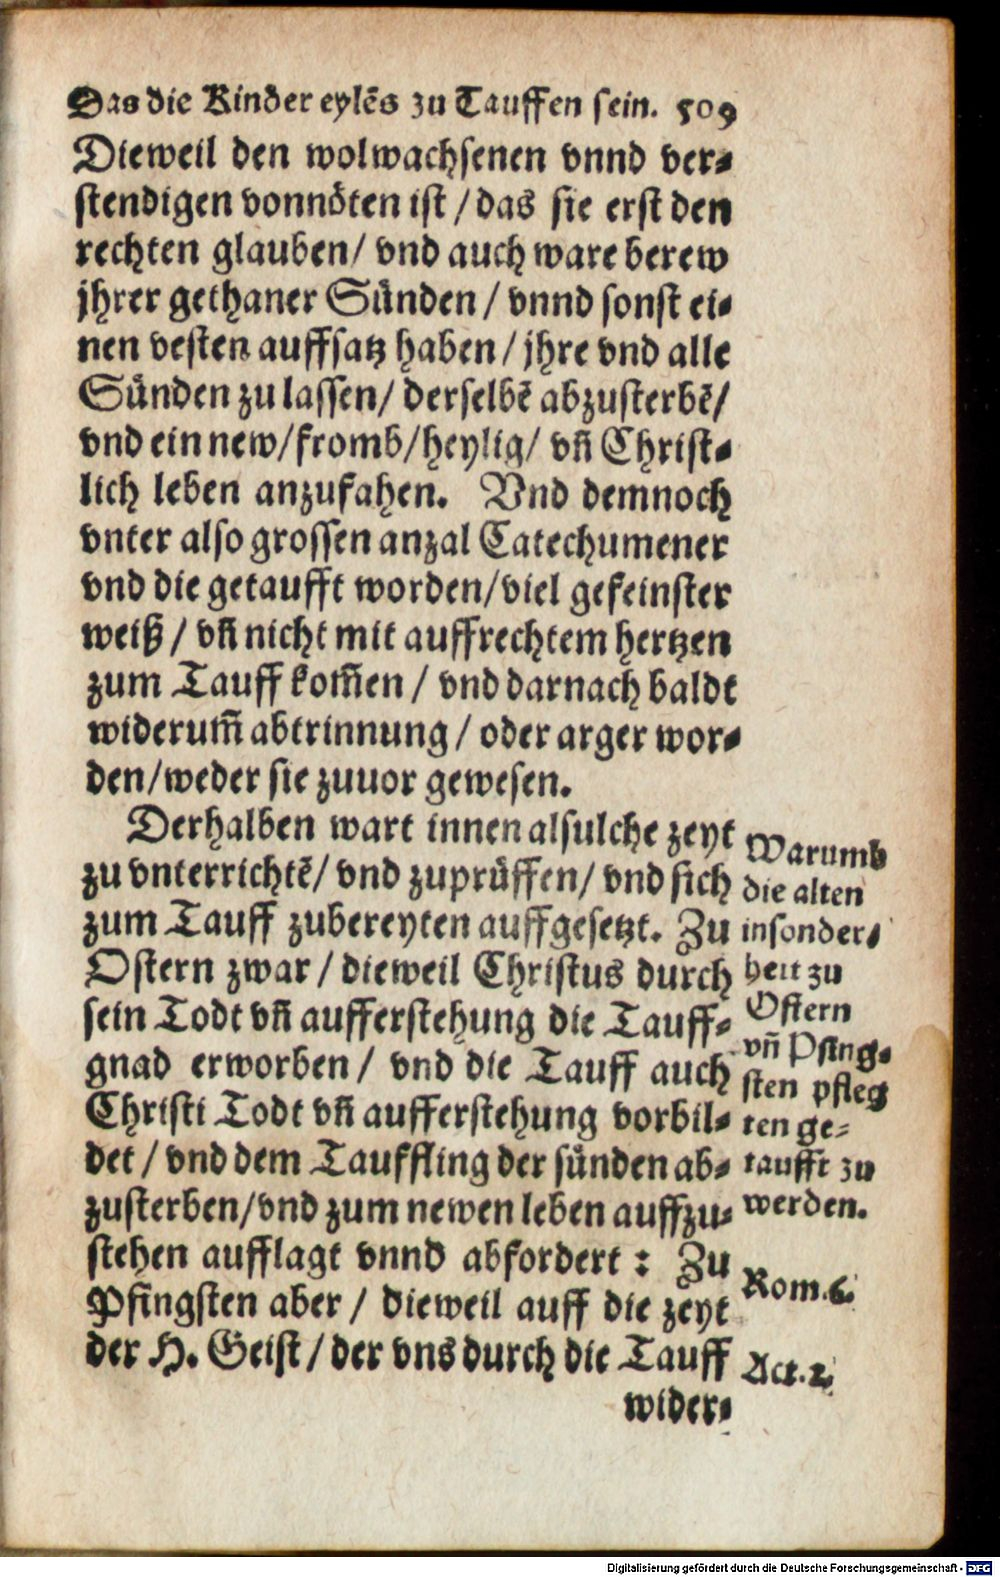 Das die Kinder eylēs zu Tauffen sein. 509
Dieweil den wolwachsenen vnnd ver⸗
stendigen vonnöten ist / das sie erst den
rechten glauben / vnd auch ware berew
jhrer gethaner Sünden / vnnd sonst ei⸗
nen vesten auffsatz haben / jhre vnd alle
Sünden zu lassen / derselbē abzusterbē /
vnd ein new / fromb / heylig / vn̄ Christ⸗
lich leben anzufahen. Vnd demnoch
vnter also grossen anzal Catechumener
vnd die getaufft worden / viel gefeinster
weiß / vn̄ nicht mit auffrechtem hertzen
zum Tauff kom̄en / vnd darnach baldt
widerum̄ abtrinnung / oder arger wor⸗
den / weder sie zuuor gewesen.
Derhalben wart innen alsulche zeyt
zu vnterrichtē / vnd zuprüffen / vnd sich
zum Tauff zubereyten auffgesetzt. Zu
Ostern zwar / dieweil Christus durch
sein Todt vn̄ aufferstehung die Tauff⸗
gnad erworben / vnd die Tauff auch
Christi Todt vn̄ aufferstehung vorbil⸗
det / vnd dem Tauffling der sünden ab⸗
zusterben / vnd zum newen leben auffzu⸗
stehen aufflagt vnnd abfordert : Zu
Pfingsten aber / dieweil auff die zeyt
der H. Geist / der vns durch die Tauff
wider⸗
Warumb
die alten
insonder⸗
heit zu
Ostern
vn̄ Pfing⸗
sten pfleg
ten ge⸗
taufft zu
werden.
Rom. 6.
Act. 2.
Digitalisierung gefördert durch die Deutsche Forschungsgemeinschaft - DFG